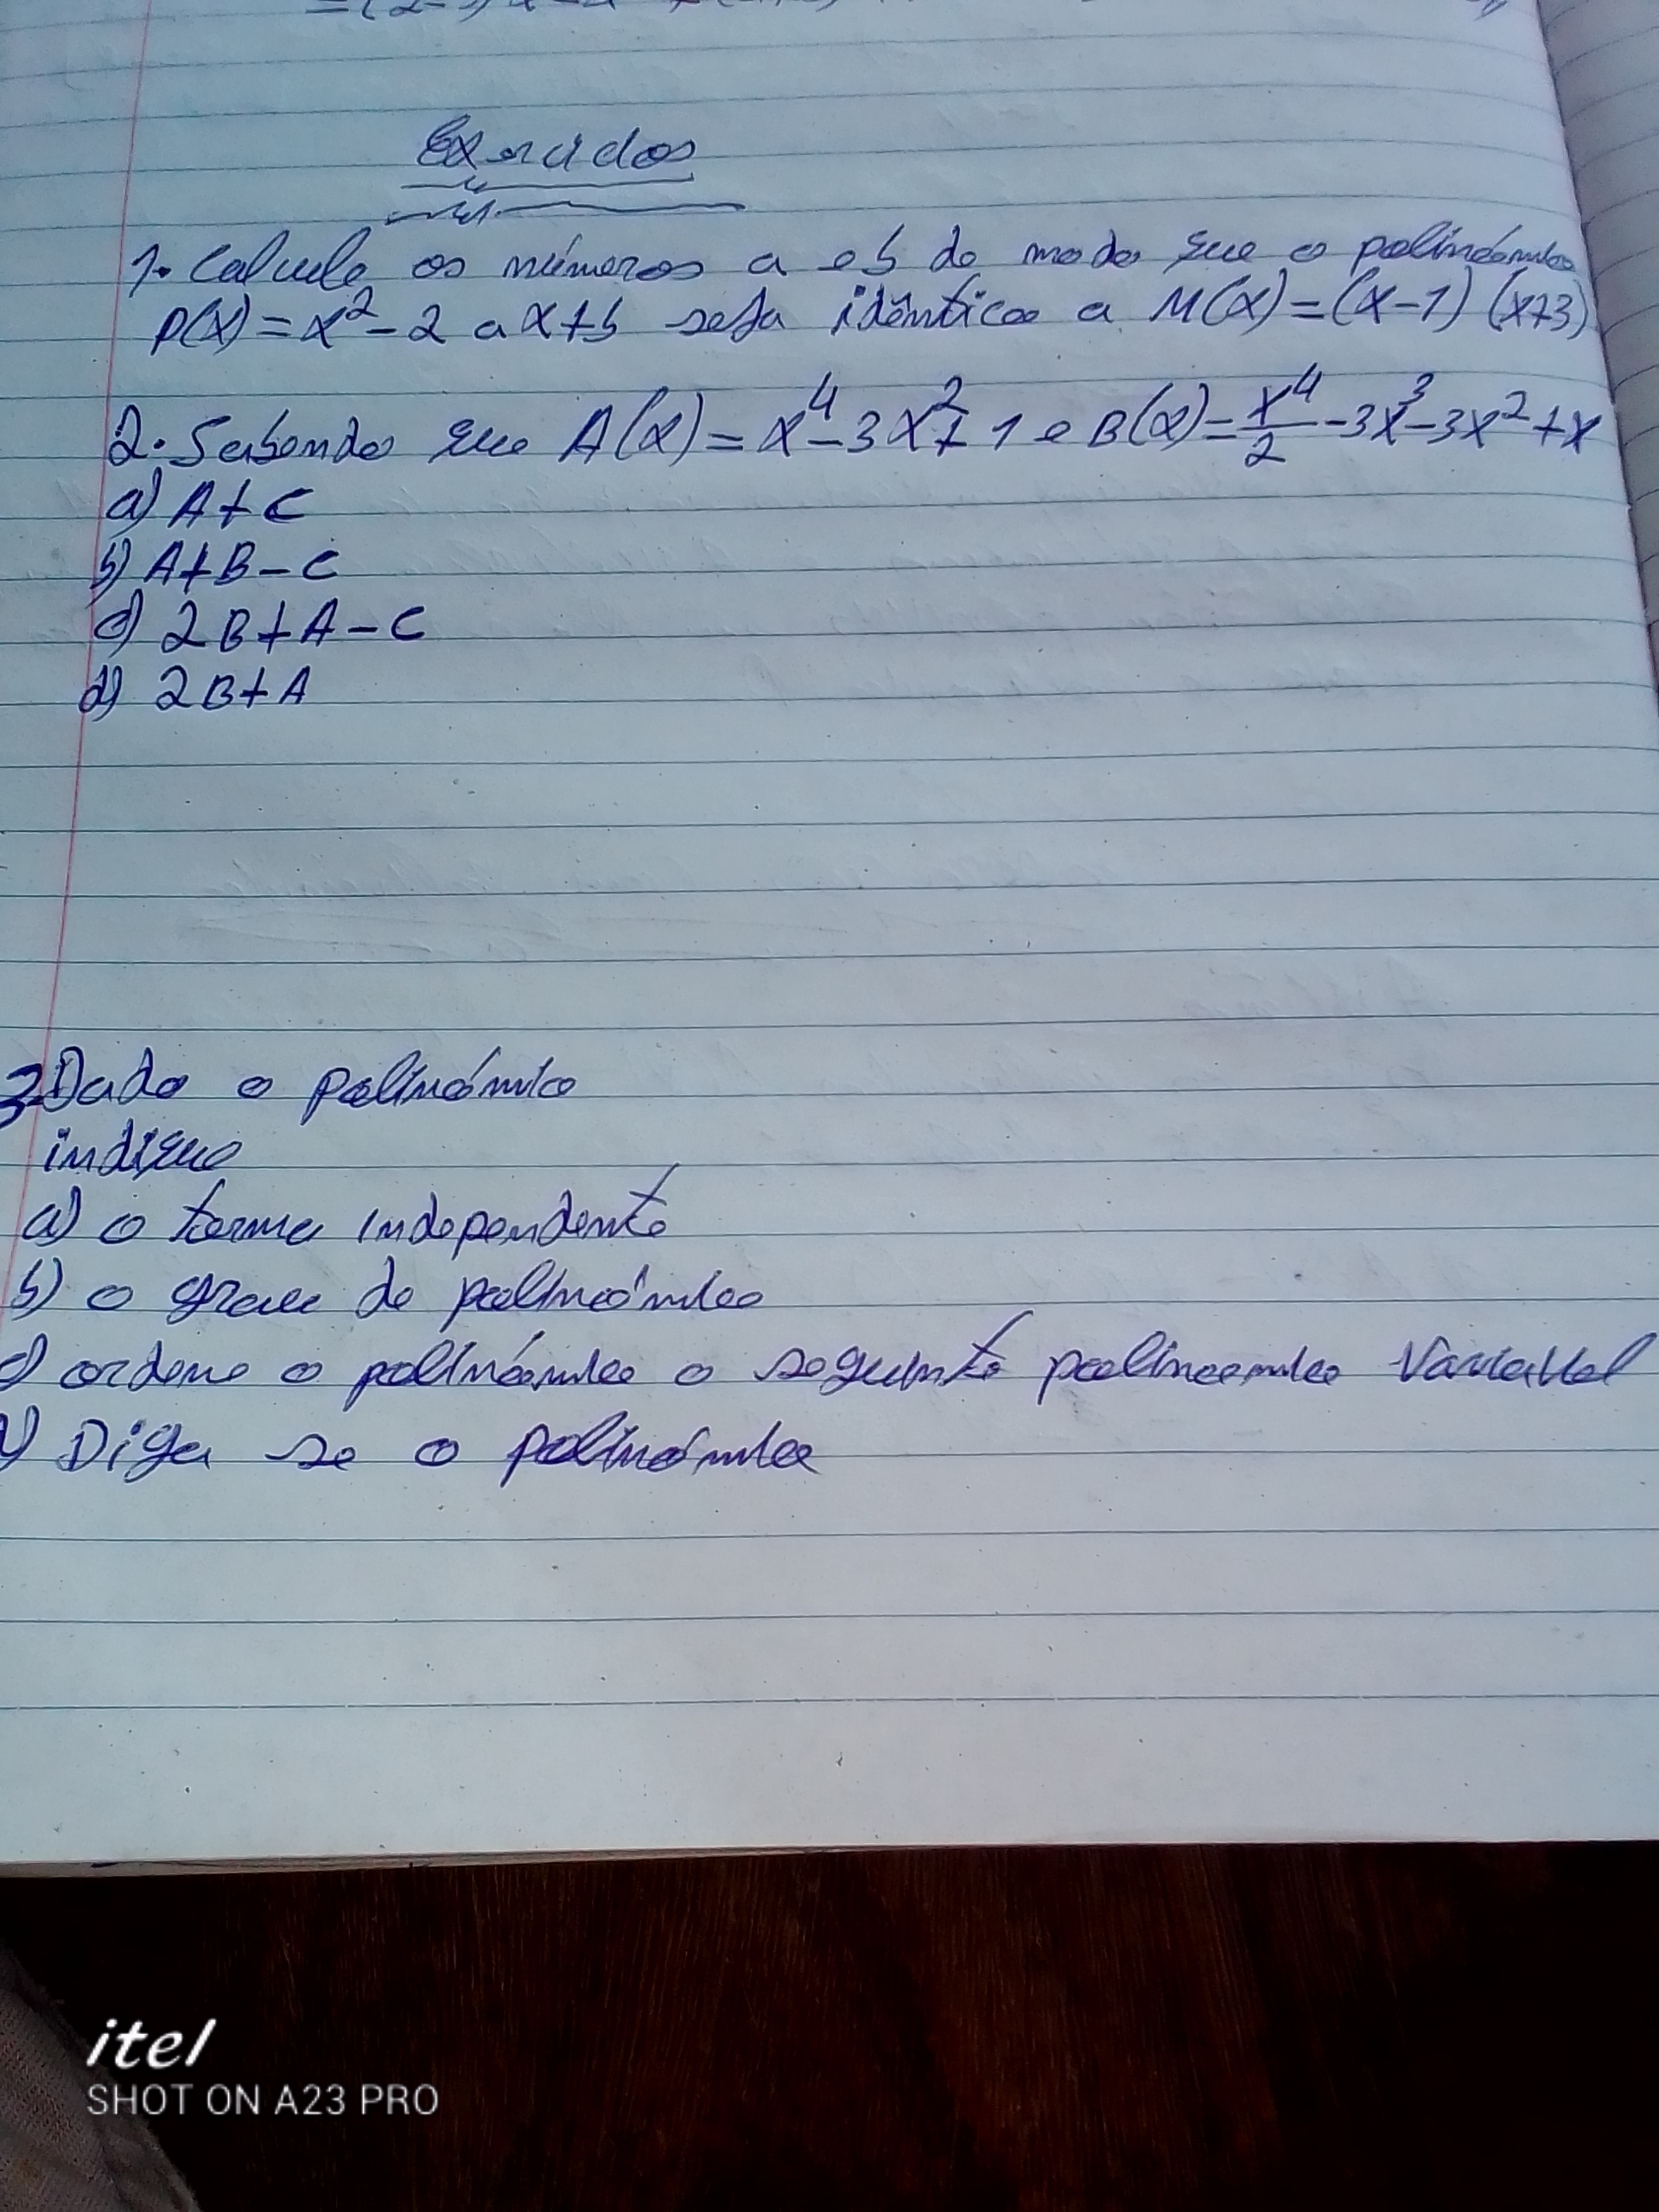 Exercicios
1. Calcule os números a e b de modo que o polinómio
P(x) = x² - 2ax + b seja idêntico a M(x) = (x-1) (x+3)
2. Sabendo que A(x) = x⁴ - 3x² + 1 e B(x) = x⁴/2 - 3x³ - 3x² + x
a) A + C
b) A + B - C
c) 2B + A - C
d) 2B + A
3 Dado o polinómio
indique
a) o termo independente
b) o grau do polinómio
c) ordene o polinómio o seguinte polinomio Variavel
d) Diga se o polinómio
itel
SHOT ON A23 PRO